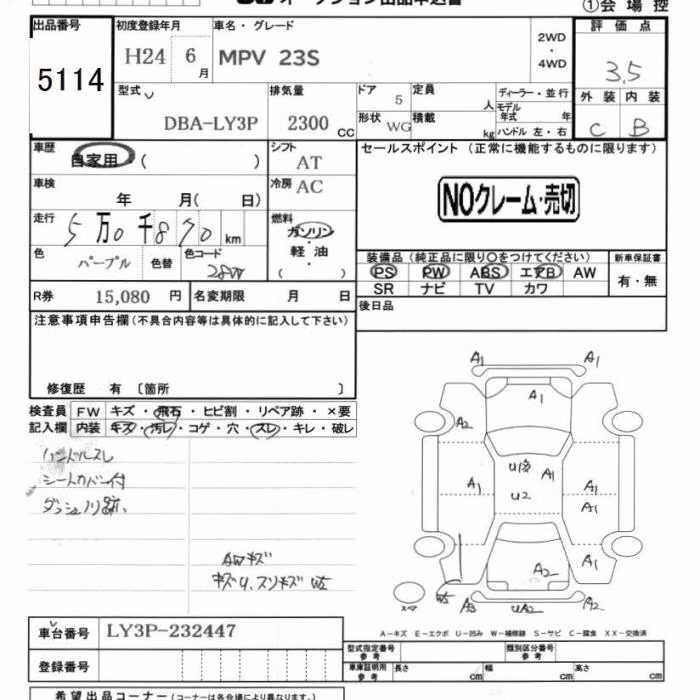 オークション出品申込書
①会場控
出品番号
5114
初度登録年月
H24 6月
車名・グレード
MPV 23S
2WD
・
4WD
評価点
3.5
型式
DBA-LY3P
排気量
2300 CC
ドア 5
定員 人
形状 WG
積載 kg
ディーラー・並行
モデル年式 年
ハンドル 左・右
外装 内装
C B
車歴
自家用 ( )
シフト AT
セールスポイント (正常に機能するものに限ります)
車検 年 月( 日)
冷房 AC
NOクレーム・売切
走行 5万0千870 km
燃料
ガソリン
・
軽油
( )
色 パープル
色替
色コード 28W
装備品 (純正品に限り〇をつけてください)
PS PW ABS エアB AW
SR ナビ TV カワ
新車保証書
有・無
R券 15,080 円
名変期限 月 日
後日品
注意事項申告欄 (不具合内容等は具体的に記入して下さい)
修復歴 有 〔箇所 〕
検査員記入欄
FW キズ・飛石・ヒビ割・リペア跡・×要
内装 キズ・汚レ・コゲ・穴・スレ・キレ・破レ
ハンドルスレ
シートカバー付
ダッシュノリ跡、
AWキズ
A1 A1
A1
A2
U1 A1
A1 U2 A1
A1
A1
A2
A3 UA2 A2
スペア
A-キズ E-エクボ U-凹み W-補修跡 S-サビ C-腐食 XX-交換済
車台番号 LY3P-232447
登録番号
型式指定番号 参考
類別区分番号 参考
車庫証明用 参考
長さ cm 幅 cm 高さ cm
希望出品コーナー (コーナーは各会場により異なります。)